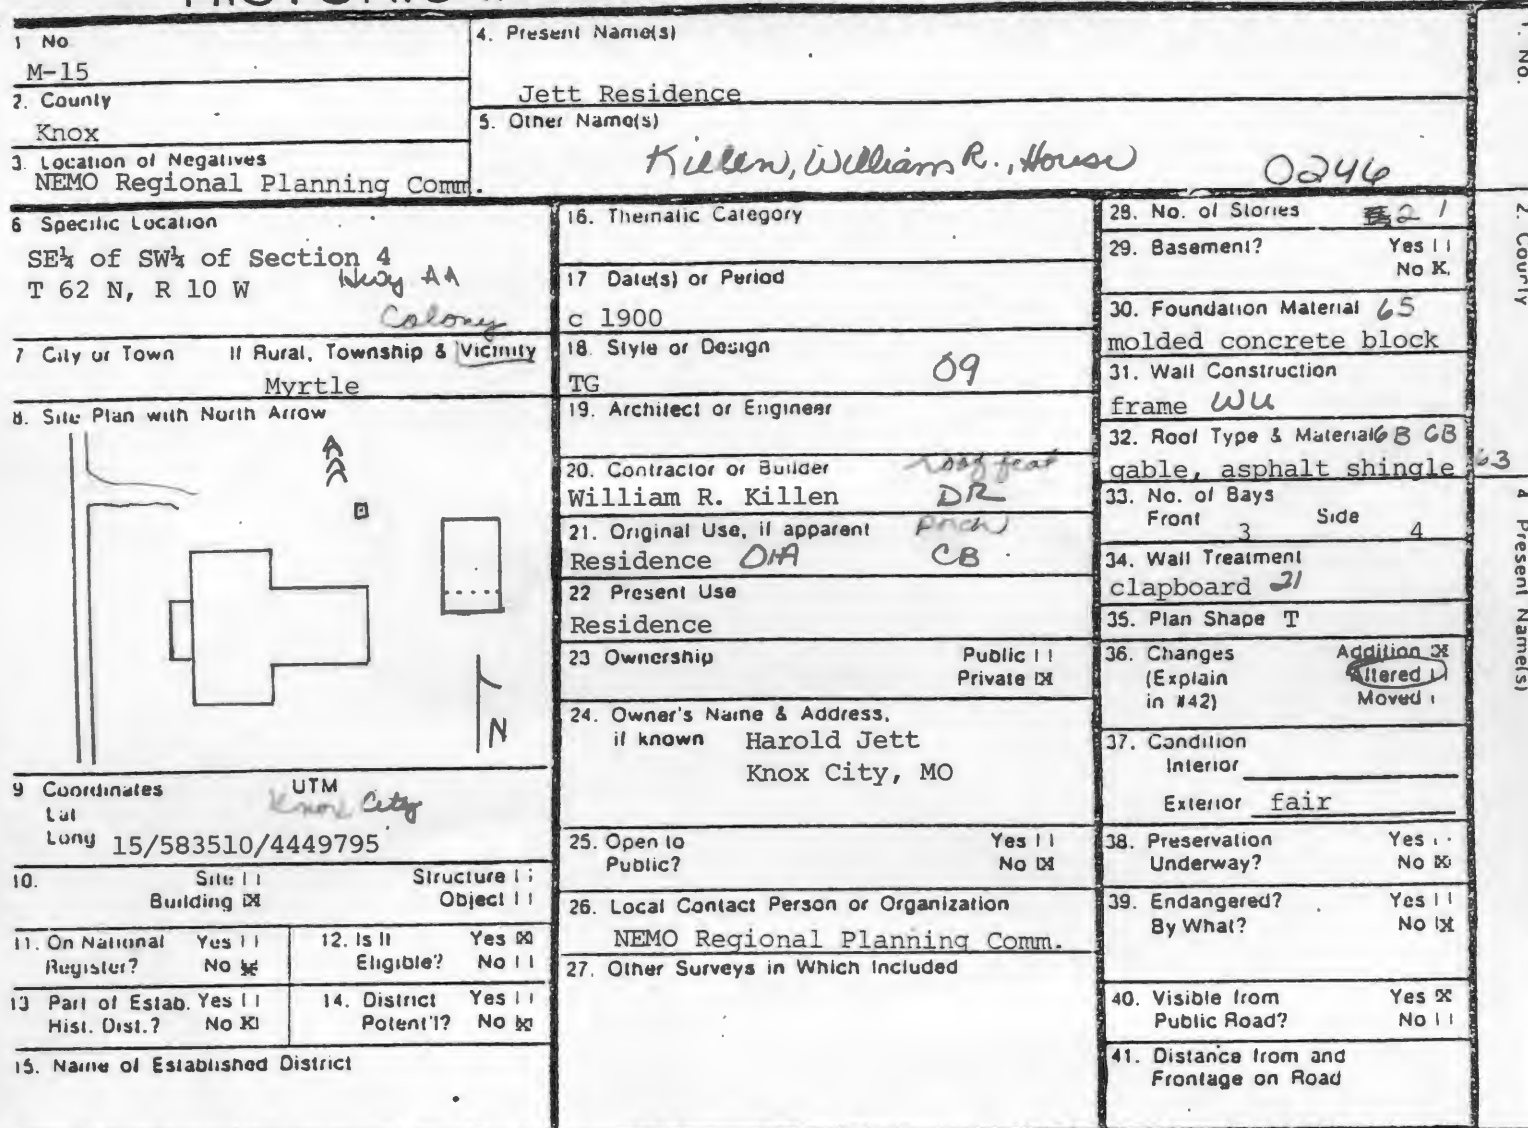 1 No
M-15
2. County
Knox
3. Location of Negatives
NEMO Regional Planning Comm.
4. Present Name(s)
Jett Residence
5. Other Name(s)
Killen, William R., House 0246
6 Specific Location
SE¼ of SW¼ of Section 4
T 62 N, R 10 W
Hwy AA
Colony
7 City or Town If Rural, Township & Vicinity
Myrtle
8. Site Plan with North Arrow
N
9 Coordinates UTM
Knox City
Lat
Long 15/583510/4449795
10. Site Structure
Building Object
11. On National Register? Yes No
12. Is It Eligible? Yes No
13 Part of Estab. Hist. Dist.? Yes No
14. District Potent'l? Yes No
15. Name of Established District
16. Thematic Category
17 Date(s) or Period
c 1900
18. Style or Design
TG 09
19. Architect or Engineer
20. Contractor or Builder roof feat
William R. Killen DR
21. Original Use, if apparent porch
Residence 01A CB
22 Present Use
Residence
23 Ownership Public
Private
24. Owner's Name & Address,
if known Harold Jett
Knox City, MO
25. Open to Yes
Public? No
26. Local Contact Person or Organization
NEMO Regional Planning Comm.
27. Other Surveys in Which Included
28. No. of Stories 2 1
29. Basement? Yes
No
30. Foundation Material 65
molded concrete block
31. Wall Construction
frame WU
32. Roof Type & Material GB GB
gable, asphalt shingle 63
33. No. of Bays
Front 3 Side 4
34. Wall Treatment
clapboard 21
35. Plan Shape T
36. Changes Addition
(Explain Altered
in #42) Moved
37. Condition
Interior
Exterior fair
38. Preservation Yes
Underway? No
39. Endangered? Yes
By What? No
40. Visible from Yes
Public Road? No
41. Distance from and
Frontage on Road
1. No.
2. County
4 Present Name(s)